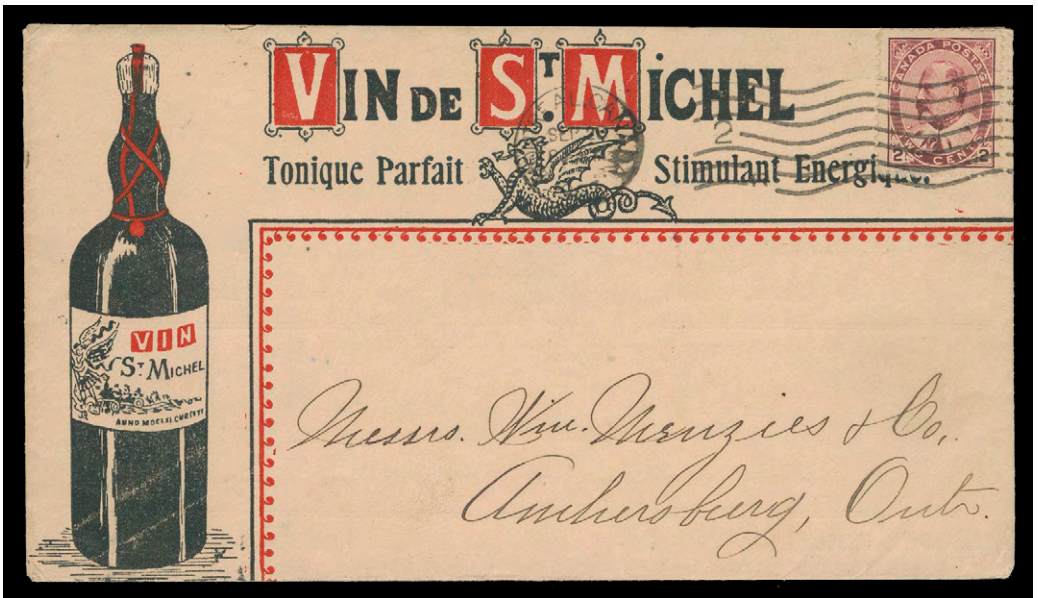 VIN DE ST. MICHEL
Tonique Parfait Stimulant Energique.
CANADA POSTAGE
2 TWO CENTS 2
2
VIN
ST MICHEL
Messrs. Wm. Menzies & Co,.
Amhersburg, Ont.